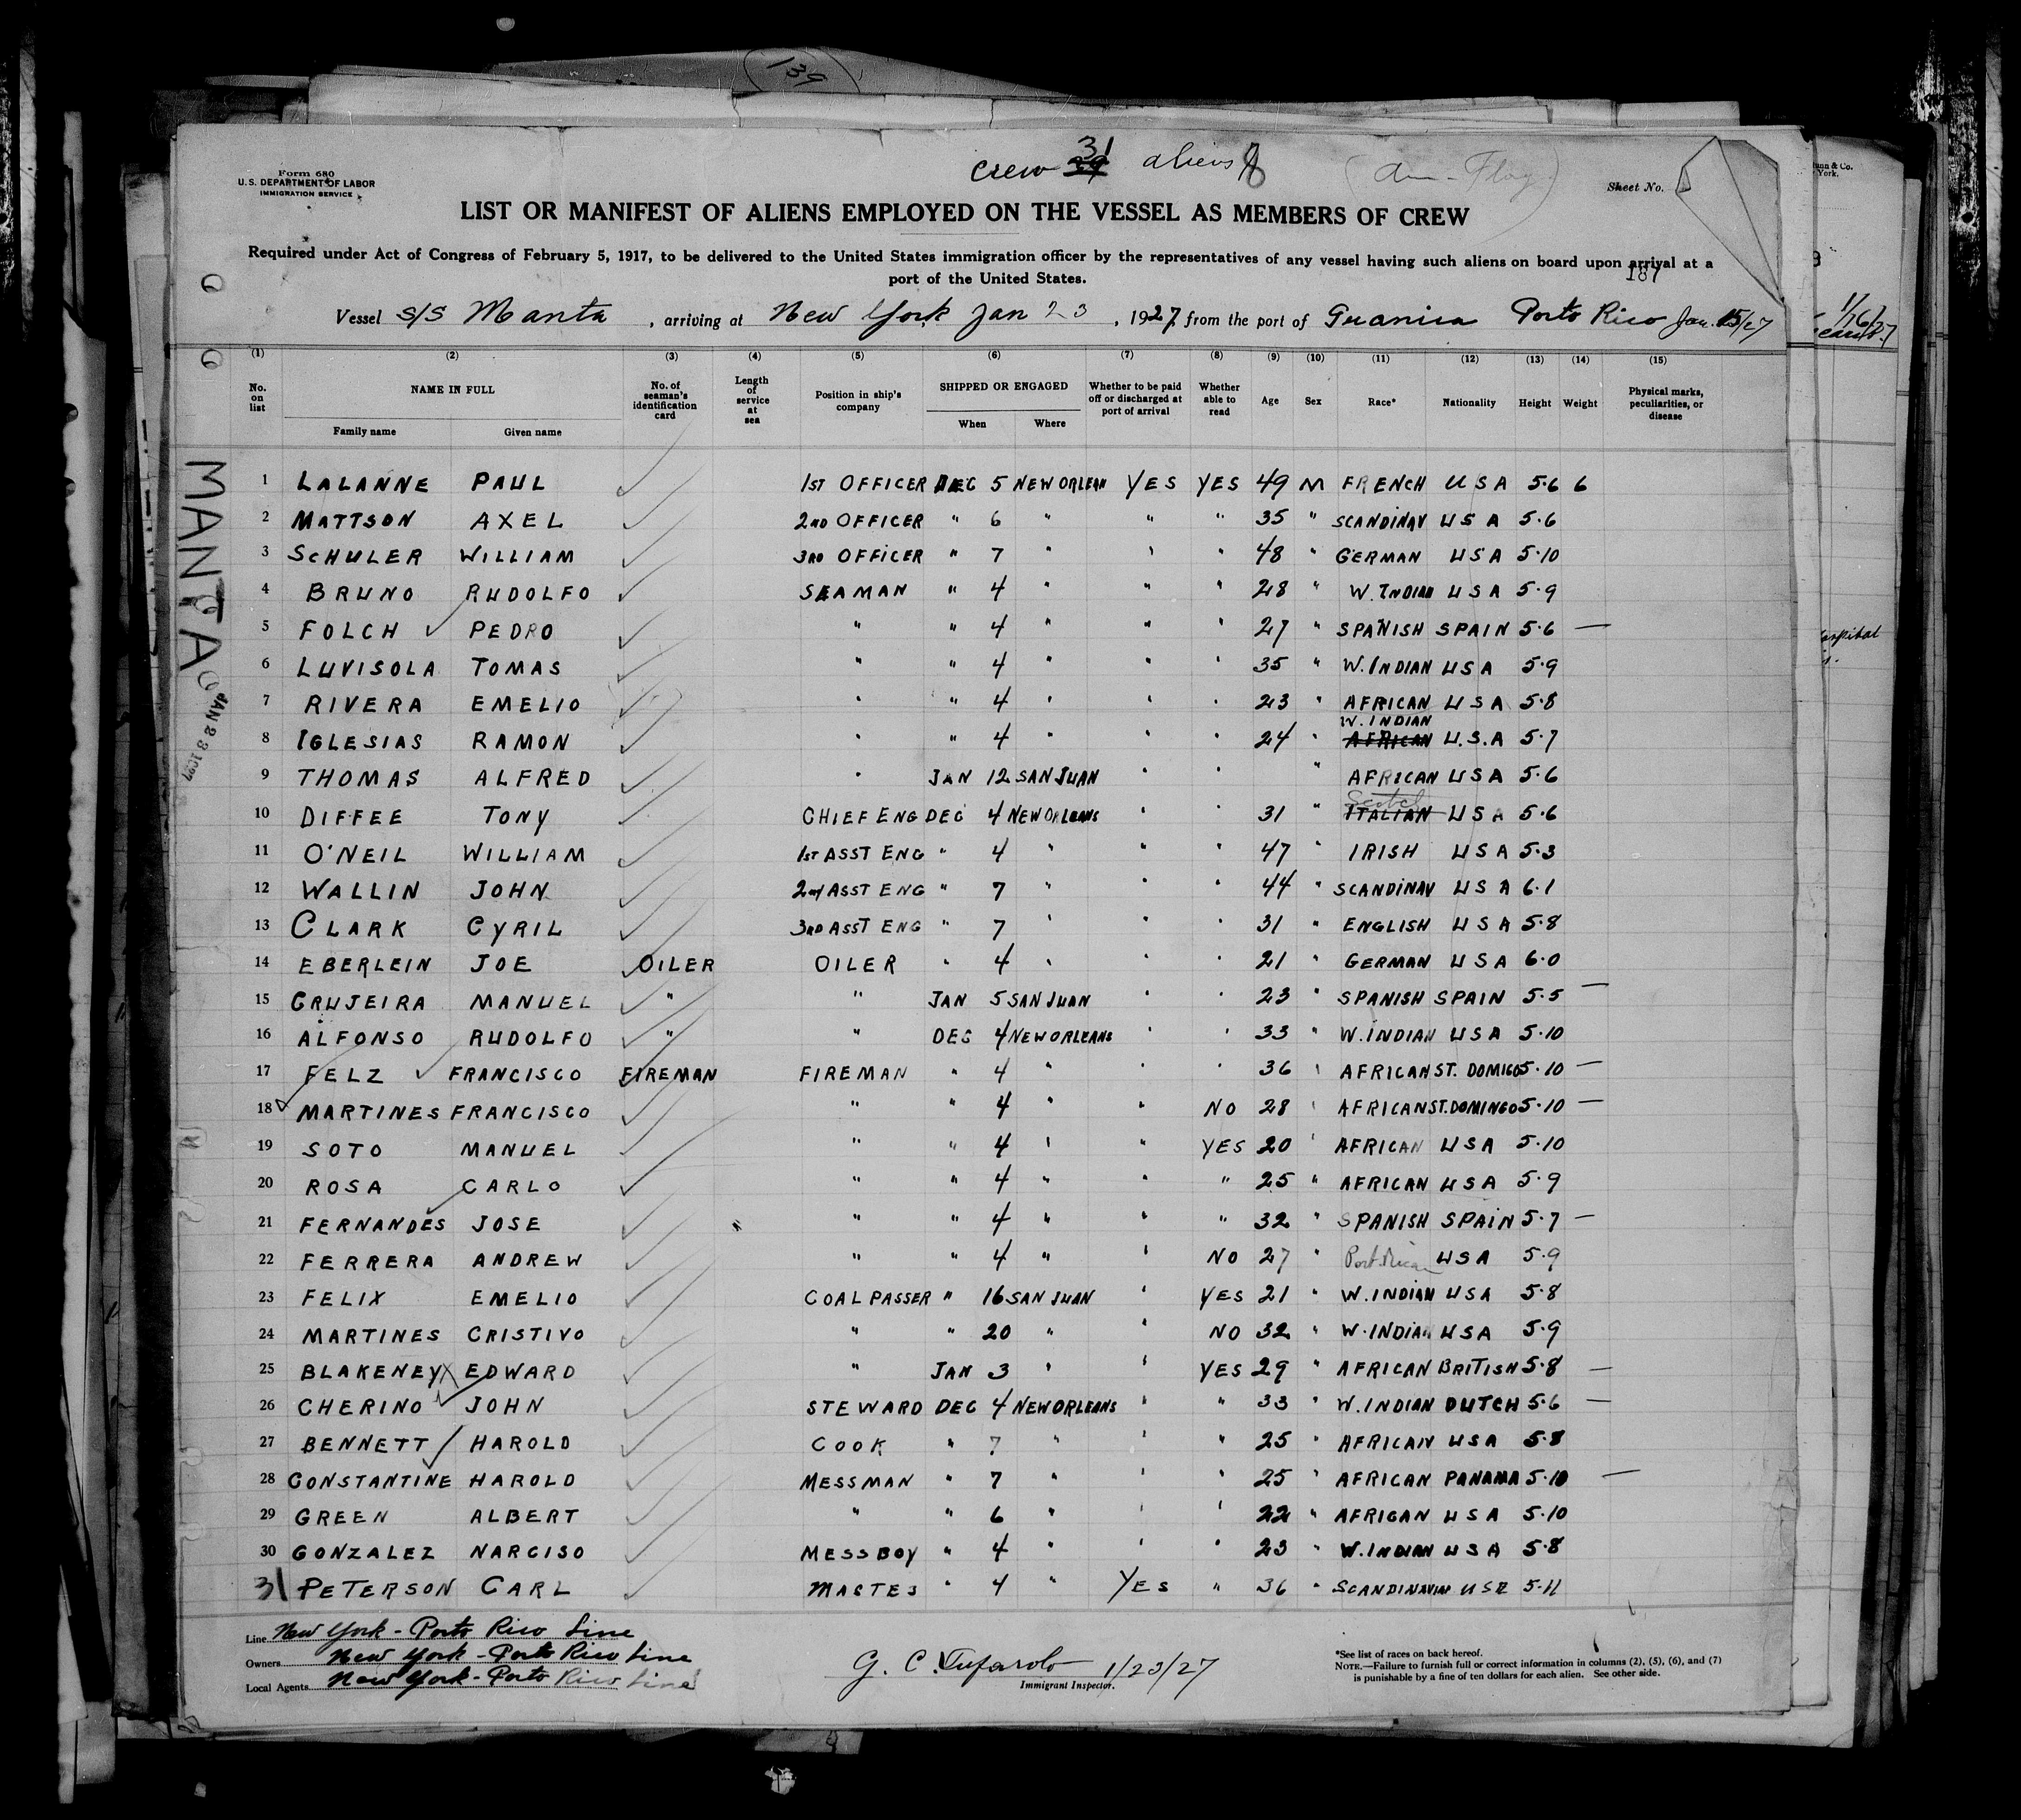 139
Crew 31 aliens 8 (Am-Flag)
Form 680
U.S. DEPARTMENT OF LABOR
IMMIGRATION SERVICE
Sheet No.
LIST OR MANIFEST OF ALIENS EMPLOYED ON THE VESSEL AS MEMBERS OF CREW
Required under Act of Congress of February 5, 1917, to be delivered to the United States immigration officer by the representatives of any vessel having such aliens on board upon arrival at a
port of the United States.
187
Vessel S/S Manta, arriving at New York Jan 23, 1927, from the port of Guanica Porto Rico Jan. 15/27
(1) (2) (3) (4) (5) (6) (7) (8) (9) (10) (11) (12) (13) (14) (15)
No. on list NAME IN FULL Family name Given name No. of seaman's identification card Length of service at sea Position in ship's company SHIPPED OR ENGAGED When Where Whether to be paid off or discharged at port of arrival Whether able to read Age Sex Race* Nationality Height Weight Physical marks, peculiarities, or disease
MANTA
JAN 23 1927
1 LALANNE PAUL 1ST OFFICER DEC 5 NEW ORLEAN YES YES 49 M FRENCH USA 5.6 6
2 MATTSON AXEL 2ND OFFICER " 6 " " " 35 " SCANDINAV USA 5.6
3 SCHULER WILLIAM 3RD OFFICER " 7 " " " 48 " GERMAN USA 5.10
4 BRUNO RUDOLFO SEAMAN " 4 " " " 28 " W. INDIAN USA 5.9
5 FOLCH PEDRO " " 4 " " " 27 " SPANISH SPAIN 5.6 —
6 LUVISOLA TOMAS " " 4 " " " 35 " W. INDIAN USA 5.9
7 RIVERA EMELIO " " 4 " " " 23 " AFRICAN USA 5.8
8 IGLESIAS RAMON " " 4 " " " 24 " W. INDIAN AFRICAN U.S.A 5.7
9 THOMAS ALFRED " JAN 12 SAN JUAN " " " AFRICAN USA 5.6
10 DIFFEE TONY CHIEF ENG DEC 4 NEW ORLEANS " " 31 " Scotch ITALIAN USA 5.6
11 O'NEIL WILLIAM 1ST ASST ENG " 4 " " " 47 " IRISH USA 5.3
12 WALLIN JOHN 2nd ASST ENG " 7 " " " 44 " SCANDINAV USA 6.1
13 CLARK CYRIL 3RD ASST ENG " 7 " " " 31 " ENGLISH USA 5.8
14 EBERLEIN JOE OILER OILER " 4 " " " 21 " GERMAN USA 6.0
15 GRUJEIRA MANUEL " " JAN 5 SAN JUAN " " 23 " SPANISH SPAIN 5.5 —
16 ALFONSO RUDOLFO " " DEC 4 NEW ORLEANS " " 33 " W. INDIAN USA 5.10
17 FELZ FRANCISCO FIREMAN FIREMAN " 4 " " " 36 " AFRICAN ST. DOMIGO 5.10 —
18 MARTINES FRANCISCO " " 4 " " NO 28 " AFRICAN ST. DOMINGO 5.10 —
19 SOTO MANUEL " " 4 " " YES 20 " AFRICAN USA 5.10
20 ROSA CARLO " " 4 " " " 25 " AFRICAN USA 5.9
21 FERNANDES JOSE " " 4 " " " 32 " SPANISH SPAIN 5.7 —
22 FERRERA ANDREW " " 4 " " NO 27 " Port. Rican USA 5.9
23 FELIX EMELIO COAL PASSER " 16 SAN JUAN " YES 21 " W. INDIAN USA 5.8
24 MARTINES CRISTIVO " " 20 " " NO 32 " W. INDIAN USA 5.9
25 BLAKENEY EDWARD " JAN 3 " " YES 29 " AFRICAN BRITISH 5.8 —
26 CHERINO JOHN STEWARD DEC 4 NEW ORLEANS " " 33 " W. INDIAN DUTCH 5.6 —
27 BENNETT HAROLD COOK " 7 " " " 25 " AFRICAN USA 5.8
28 CONSTANTINE HAROLD MESSMAN " 7 " " " 25 " AFRICAN PANAMA 5.10 —
29 GREEN ALBERT " " 6 " " " 22 " AFRICAN USA 5.10
30 GONZALEZ NARCISO MESSBOY " 4 " " " 23 " W. INDIAN USA 5.8
31 PETERSON CARL MASTES " 4 " YES " 36 " SCANDINAVIN USA 5.11
Line New York - Porto Rico Line
Owners New York - Porto Rico Line
Local Agents New York - Porto Rico Line
G. C. Tufarolo 1/23/27
Immigrant Inspector.
*See list of races on back hereof.
NOTE.—Failure to furnish full or correct information in columns (2), (5), (6), and (7)
is punishable by a fine of ten dollars for each alien. See other side.
& Co.
York.
1/16/27